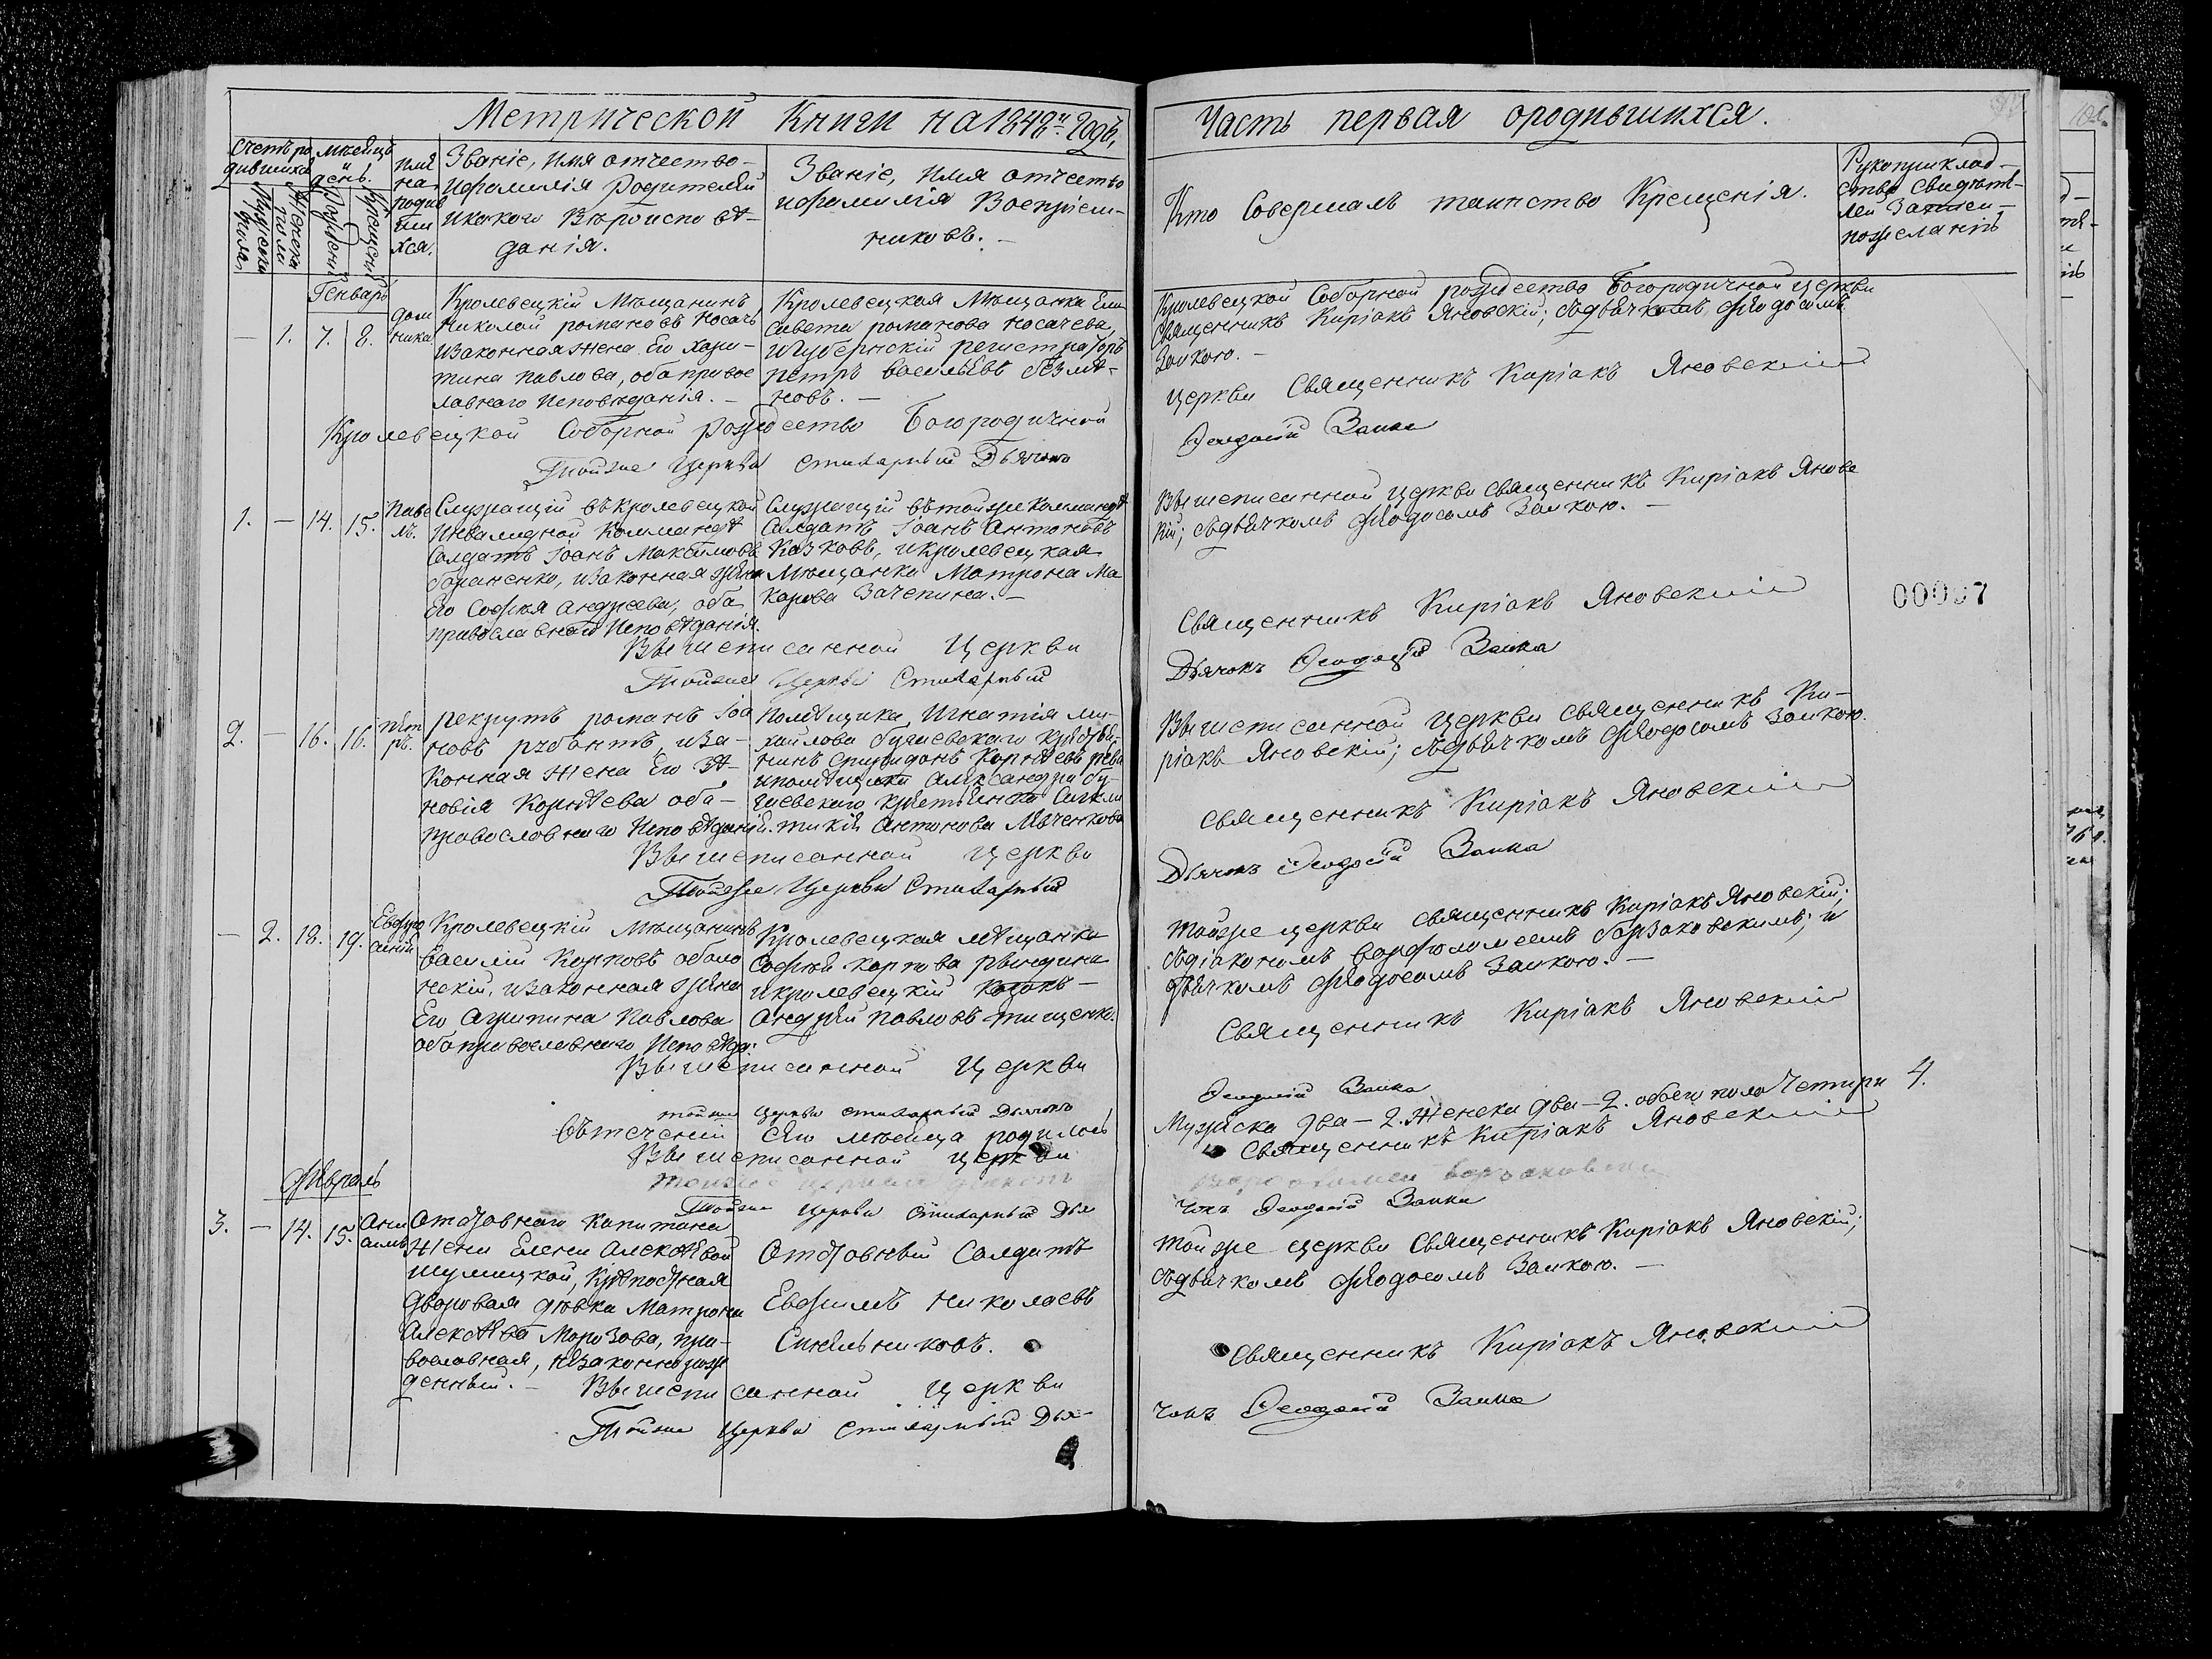 Метрической Книги на 1842й Годъ,
Часть первая ородившихся.
Счетъ ро
дившихся
Мѣсяцъ
и
день.
Имѧ
на
родив
ши
хся.
Званіе, имя отчество
ифамилія Родителей
икакого Вѣроисповѣ-
данія.
Званіе, имя отчество
ифамилія Воспріем-
никовъ.
Кто Совершалъ таинство Крещенія.
Рукоприклад-
ство Свидѣте-
лей Записи
пожеланію
Генварь
— 1. 7. 8.
Дом
ника
Кролевецкій Мѣщанинъ
Николай романовъ Носачъ
изаконная жена Его Хари-
тина Павлова, оба правос
лавнаго Исповѣданія. —
Кролевецкая Мѣщанка Ели
савета романова Носачева,
иГубернскій регистраторъ
Петръ Васильевъ
Кролевецкой Соборной рождество Богородичной церкви
Священникъ Киріакъ Яновскій; съдьячкомъ Феодосомъ
Заикою. —
Кролевецкой Соборной рождество Богородичной
церкви Священникъ Киріакъ Яновскій
Тойже Церкви Стихарный Дьячокъ
Феодосій Заика
1. — 14. 15.
Паве
лъ.
Служащій въКролевецкой
Инвалидной Коммандѣ
Солдатъ Іоанъ Максимовъ
Бараненко, изаконная жена
Его Софія Андреева, оба
православнаго Исповѣданія.
Служащій вътойже Коммандѣ
Солдатъ Іоанъ Антоновъ
Казковъ, икролевецкая
Мѣщанка Матрона Ма
карова Зачепина. —
Вышеписанной церкви священникъ Киріакъ Яновс
кій; съдьячкомъ Феодосомъ Заикою. —
Вышеписанной Церкви
Священникъ Киріакъ Яновскій
00007
Тойже Церкви Стихарный
Дьячокъ Феодосій Заика
2. — 16. 16.
Пет
ръ.
рекрутъ романъ Іоа
новъ иза-
конная жена Его Зѣ-
новія Корнѣева оба
православнаго Исповѣданія.
Помѣщика Игнатія Ми-
хайлова крестья-
нинъ Спиридонъ Корнѣевъ
ипомѣщика Александра
крестьянка
Антонова
Вышеписанной церкви священникъ Ки-
ріакъ Яновскій; съдьячкомъ Феодосомъ Заикою.
Вышеписанной церкви
священникъ Киріакъ Яновскій
Тойже Церкви Стихарный
Дьячокъ Феодосій Заика
— 2. 18. 19.
Евфро
синія
Кролевецкій Мѣщанинъ
Василій Карповъ оболо
нскій, изаконная жена
Его Агрипина Павлова
оба православнаго Исповѣда:
Кролевецкая мѣщанка
Софія Карпова Рындина
икролевецкій Козакъ —
Андрей Павловъ Тищенко.
Тойже церкви священникъ Киріакъ Яновскій;
съдіякономъ Варфоломеемъ Барзаковскимъ; и
дьячкомъ Феодосомъ Заикою. —
Вышеписанной Церкви
Священникъ Киріакъ Яновскій
тойже Церкви стихарный Дьячокъ
Феодосій Заика
Втеченіи сего мѣсяца родилось
Мужеска два — 2. Женска два — 2. обоего пола Четыри 4.
Вышеписанной церкви
Священникъ Киріакъ Яновскій
Тойже Церкви Стихарный Дья
чокъ Феодосій Заика
Февраль
3. — 14. 15.
Отставнаго Капитана
Жены Елены Алексѣевой
Шумицкой, крѣпостная
дворовая дѣвка Матрона
Алексѣева Морозова, пра-
вославная, незаконнорож
денный. —
Отставный Солдатъ
Евфимъ Николаевъ
Синельниковъ.
Тойже церкви Священникъ Киріакъ Яновскій;
съдьячкомъ Феодосомъ Заикою. —
Вышеписанной церкви
Священникъ Киріакъ Яновскій
Тойже Церкви Стихарный Дья-
чокъ Феодосій Заика